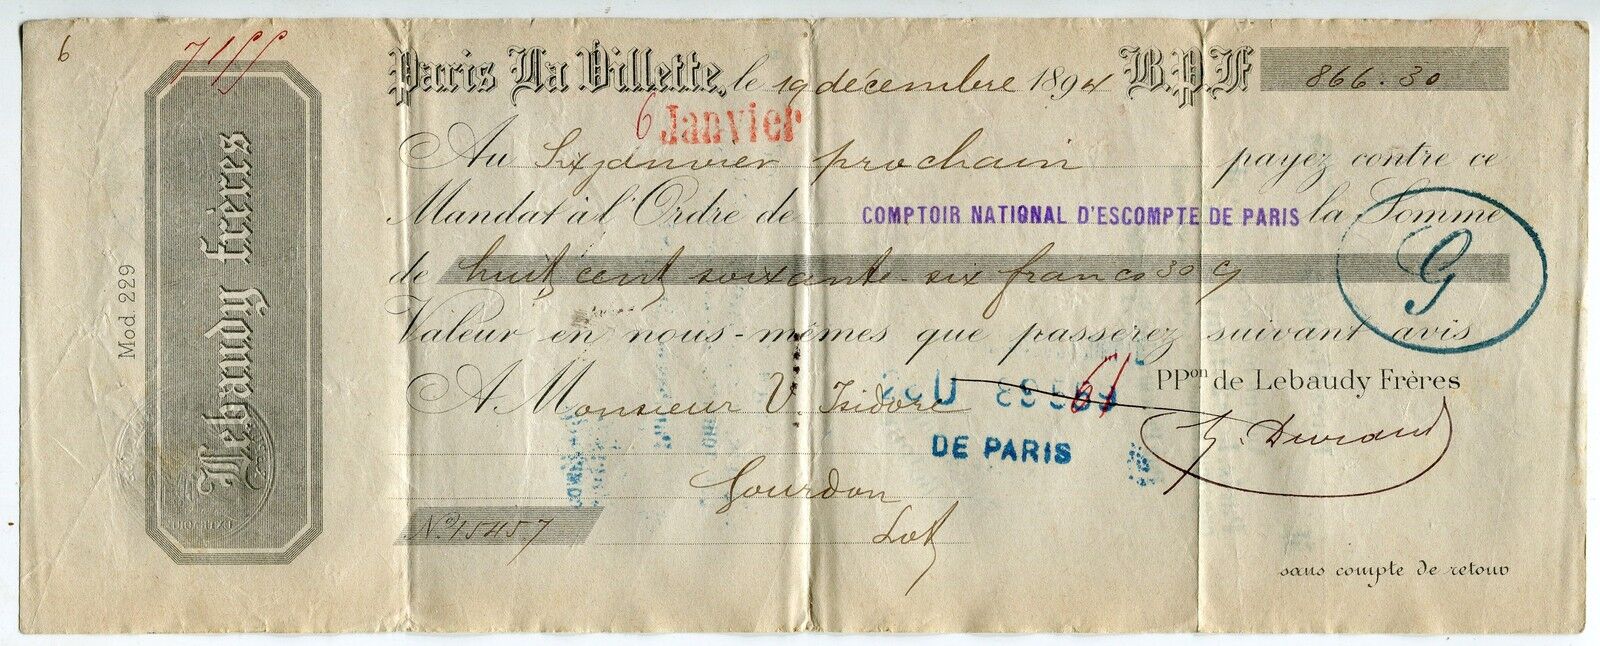 6
7155
Paris La Villette, le 19 décembre 1894 B.P.F 866.30
6 Janvier
Au Six janvier prochain payez contre ce
Mandat à l'Ordre de COMPTOIR NATIONAL D'ESCOMPTE DE PARIS la Somme
de huit cent soixante-six francs 30 c
Valeur en nous-mêmes que passerez suivant avis
G
PPon de Lebaudy Frères
A Monsieur V. Isidore
61
DE PARIS
Durand
Gourdon
Lot
No. 15457
sans compte de retour
Lebaudy frères
Mod. 229